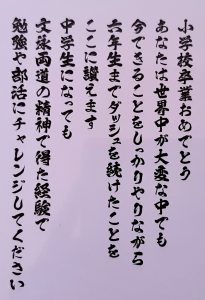 小学校卒業おめでとう
あなたは世界中が大変な中でも
今できることをしっかりやりながら
六年生までダッシュを続けたことを
ここに讃えます
中学生になっても
文武両道の精神で得た経験で
勉強や部活にチャレンジしてください